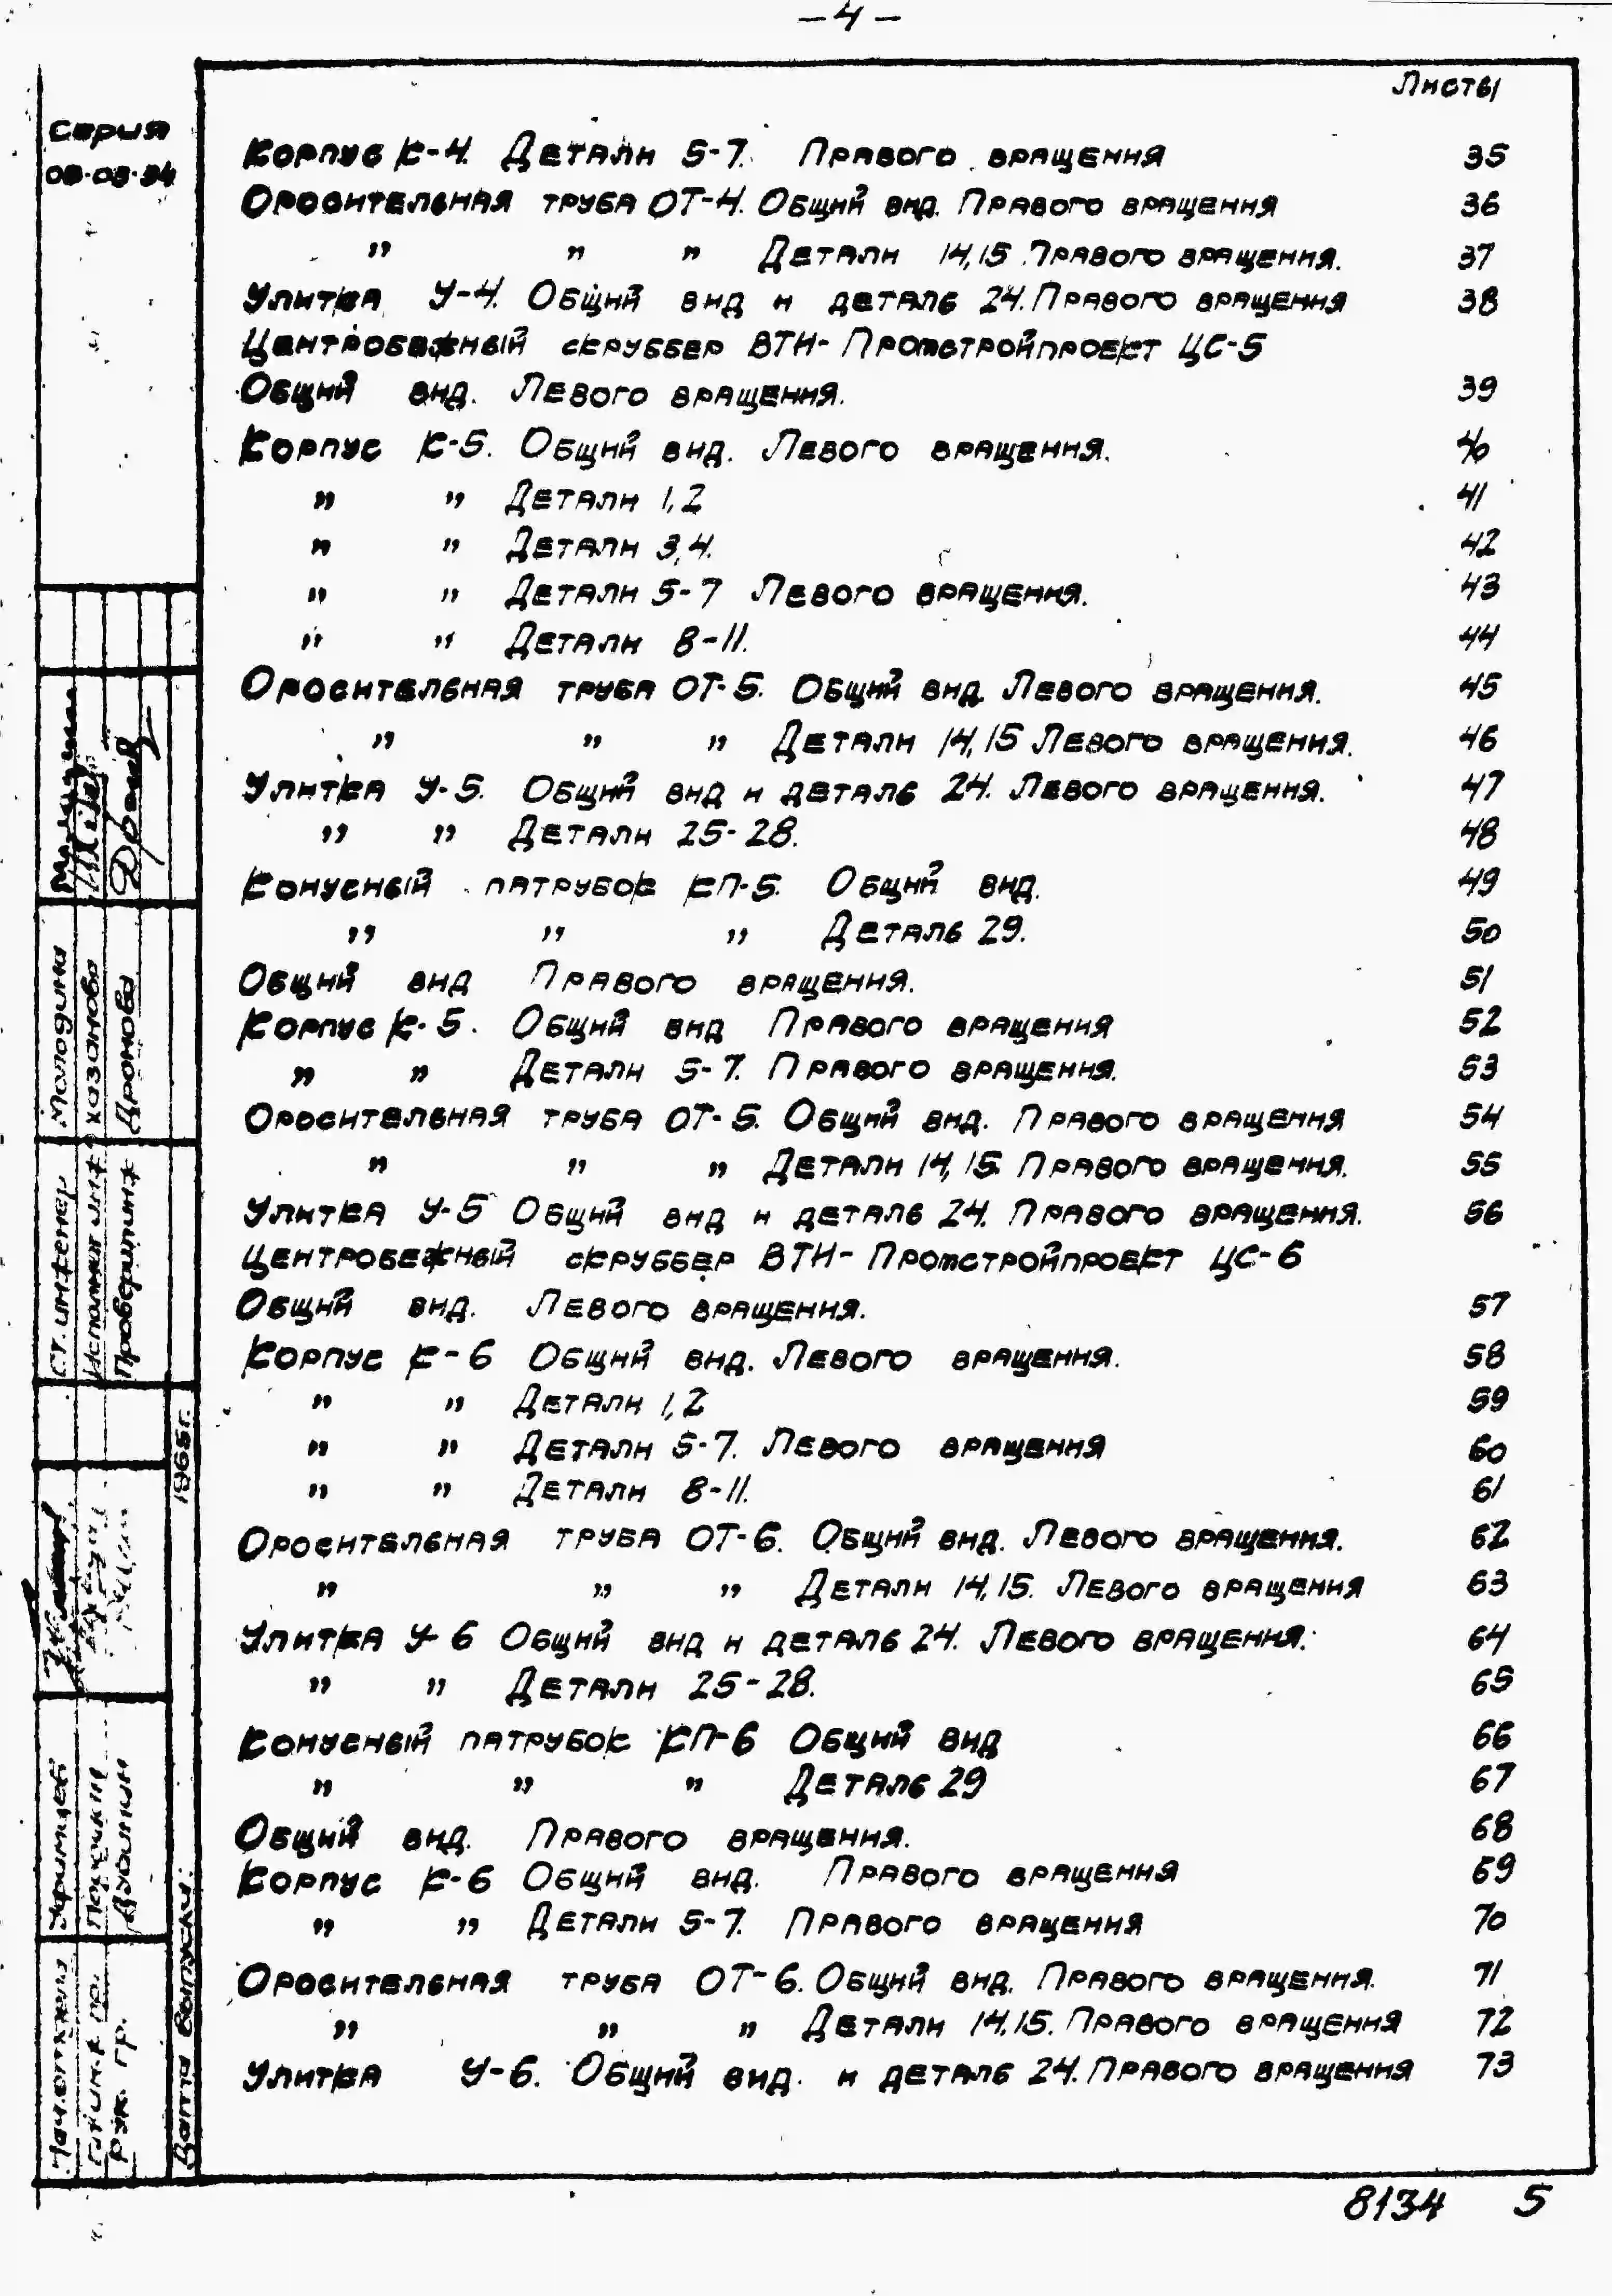 – 4 –
Листы
Серия
Корпус К-4. Детали 5-7. Правого вращения 35
ОВ-03-34
Оросительная труба ОТ-4. Общий вид. Правого вращения 36
" " " Детали 14,15. Правого вращения. 37
Улитка У-4. Общий вид и деталь 24. Правого вращения 38
Центробежный скруббер ВТИ-Промстройпроект ЦС-5
Общий вид. Левого вращения. 39
Корпус К-5. Общий вид. Левого вращения. 40
" " Детали 1,2 41
" " Детали 3,4. 42
" " Детали 5-7 Левого вращения. 43
" " Детали 8-11. 44
Оросительная труба ОТ-5. Общий вид. Левого вращения. 45
" " " Детали 14,15 Левого вращения. 46
Улитка У-5. Общий вид и деталь 24. Левого вращения. 47
" " Детали 25-28. 48
Конусный патрубок КП-5. Общий вид. 49
" " " Деталь 29. 50
Общий вид Правого вращения. 51
Корпус К-5. Общий вид Правого вращения 52
" " Детали 5-7. Правого вращения. 53
Оросительная труба ОТ-5. Общий вид. Правого вращения 54
" " " Детали 14,15. Правого вращения. 55
Улитка У-5 Общий вид и деталь 24. Правого вращения. 56
Центробежный скруббер ВТИ-Промстройпроект ЦС-6
Общий вид. Левого вращения. 57
Корпус К-6 Общий вид. Левого вращения. 58
" " Детали 1,2 59
" " Детали 5-7. Левого вращения 60
" " Детали 8-11. 61
Оросительная труба ОТ-6. Общий вид. Левого вращения. 62
" " " Детали 14,15. Левого вращения 63
Улитка У-6 Общий вид и деталь 24. Левого вращения. 64
" " Детали 25-28. 65
Конусный патрубок КП-6 Общий вид 66
" " " Деталь 29 67
Общий вид. Правого вращения. 68
Корпус К-6 Общий вид. Правого вращения 69
" " Детали 5-7. Правого вращения 70
Оросительная труба ОТ-6. Общий вид. Правого вращения. 71
" " " Детали 14,15. Правого вращения 72
Улитка У-6. Общий вид. и деталь 24. Правого вращения 73
Ст. инженер Молодина
Исполнил инж Казанова
Проверил инж Дронова
Нач. отдела
Гл. инж. пр.
Рук. гр. Дубинин
Дата выпуска: 1965г.
8134 5